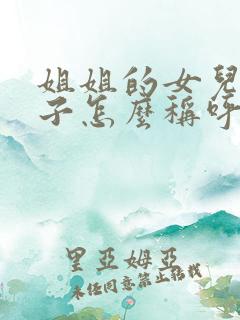 姐姐的女兒
子怎麼稱呼
里亞姆亞
未经同意禁止转载